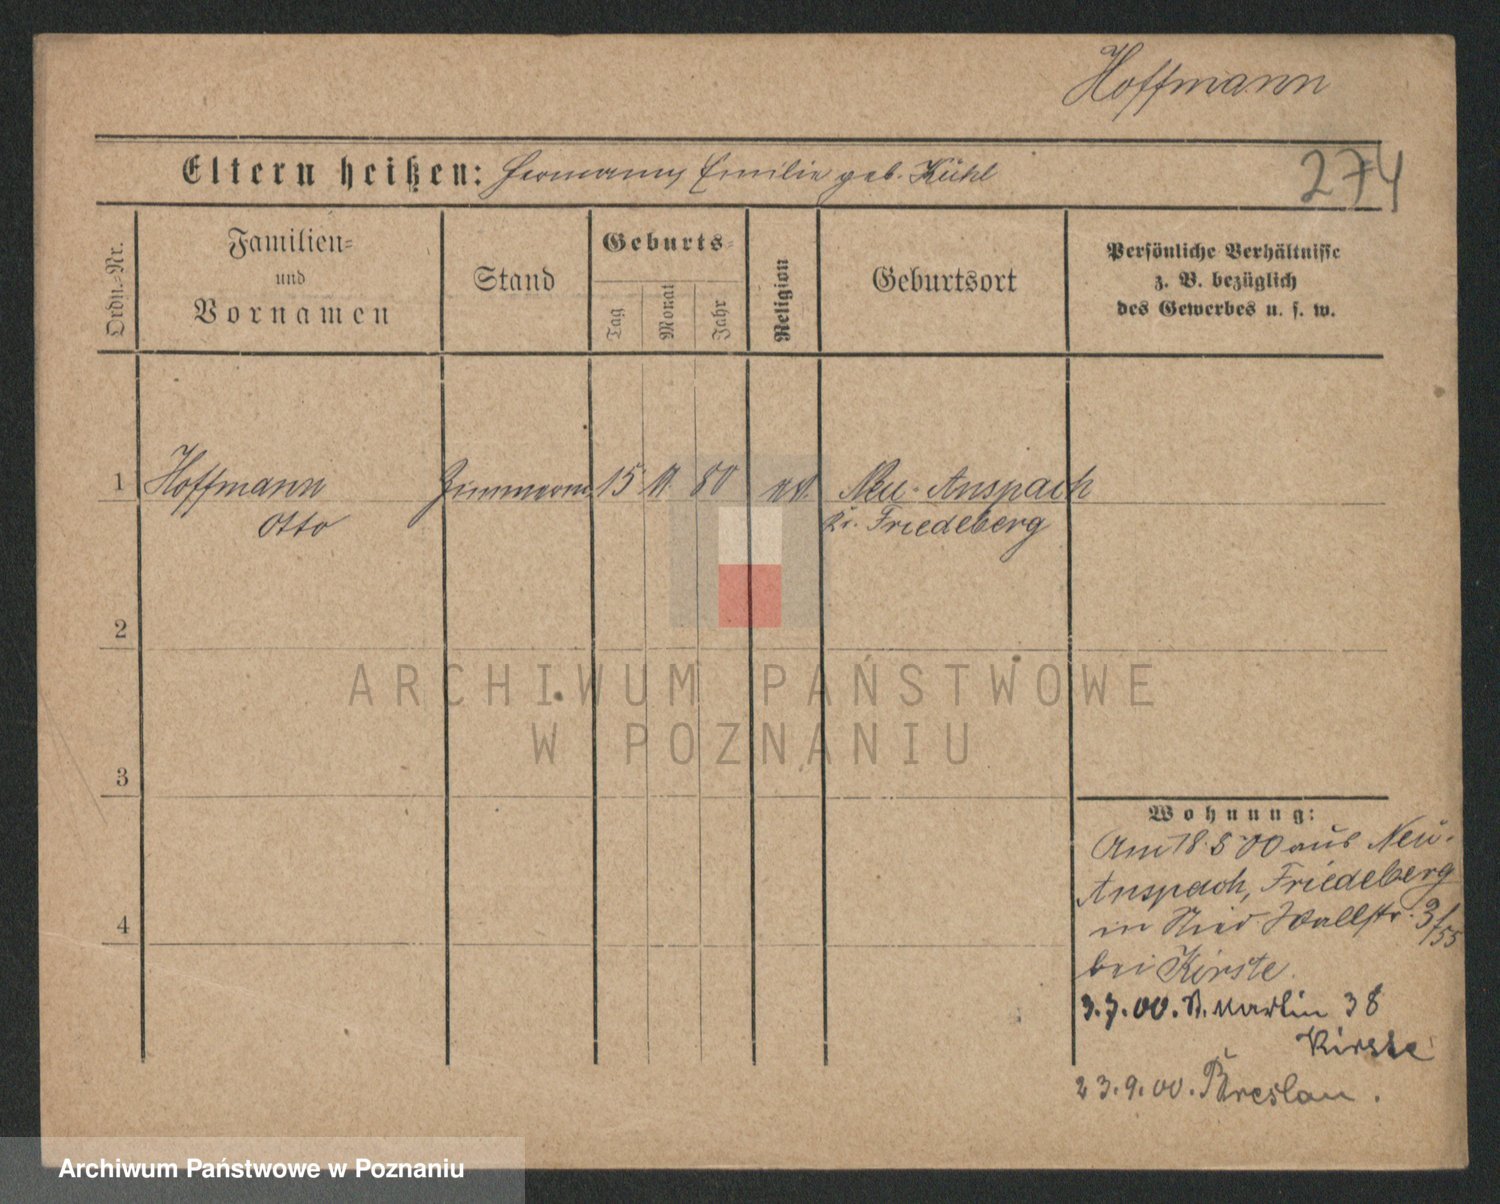 Hoffmann
Eltern heißen: Hermann, Emilie geb. Kühl
274
Ordn.-Nr.
Familien-
und
Vornamen
Stand
Geburts-
Tag
Monat
Jahr
Religion
Geburtsort
Persönliche Verhältnisse
z. B. bezüglich
des Gewerbes u. s. w.
1 Hoffmann Zimmerm. 15 11. 80 ev. Neu-Anspach
Otto Kr. Friedeberg
2
3
4
Wohnung:
Am 18.5.00 aus Neu-
Anspach, Friedeberg
in Nied Wallstr. 3/55
bei Kirste.
3.7.00. St. Martin 38
Kirste
23.9.00. Breslau.
ARCHIWUM PAŃSTWOWE
W POZNANIU
Archiwum Państwowe w Poznaniu